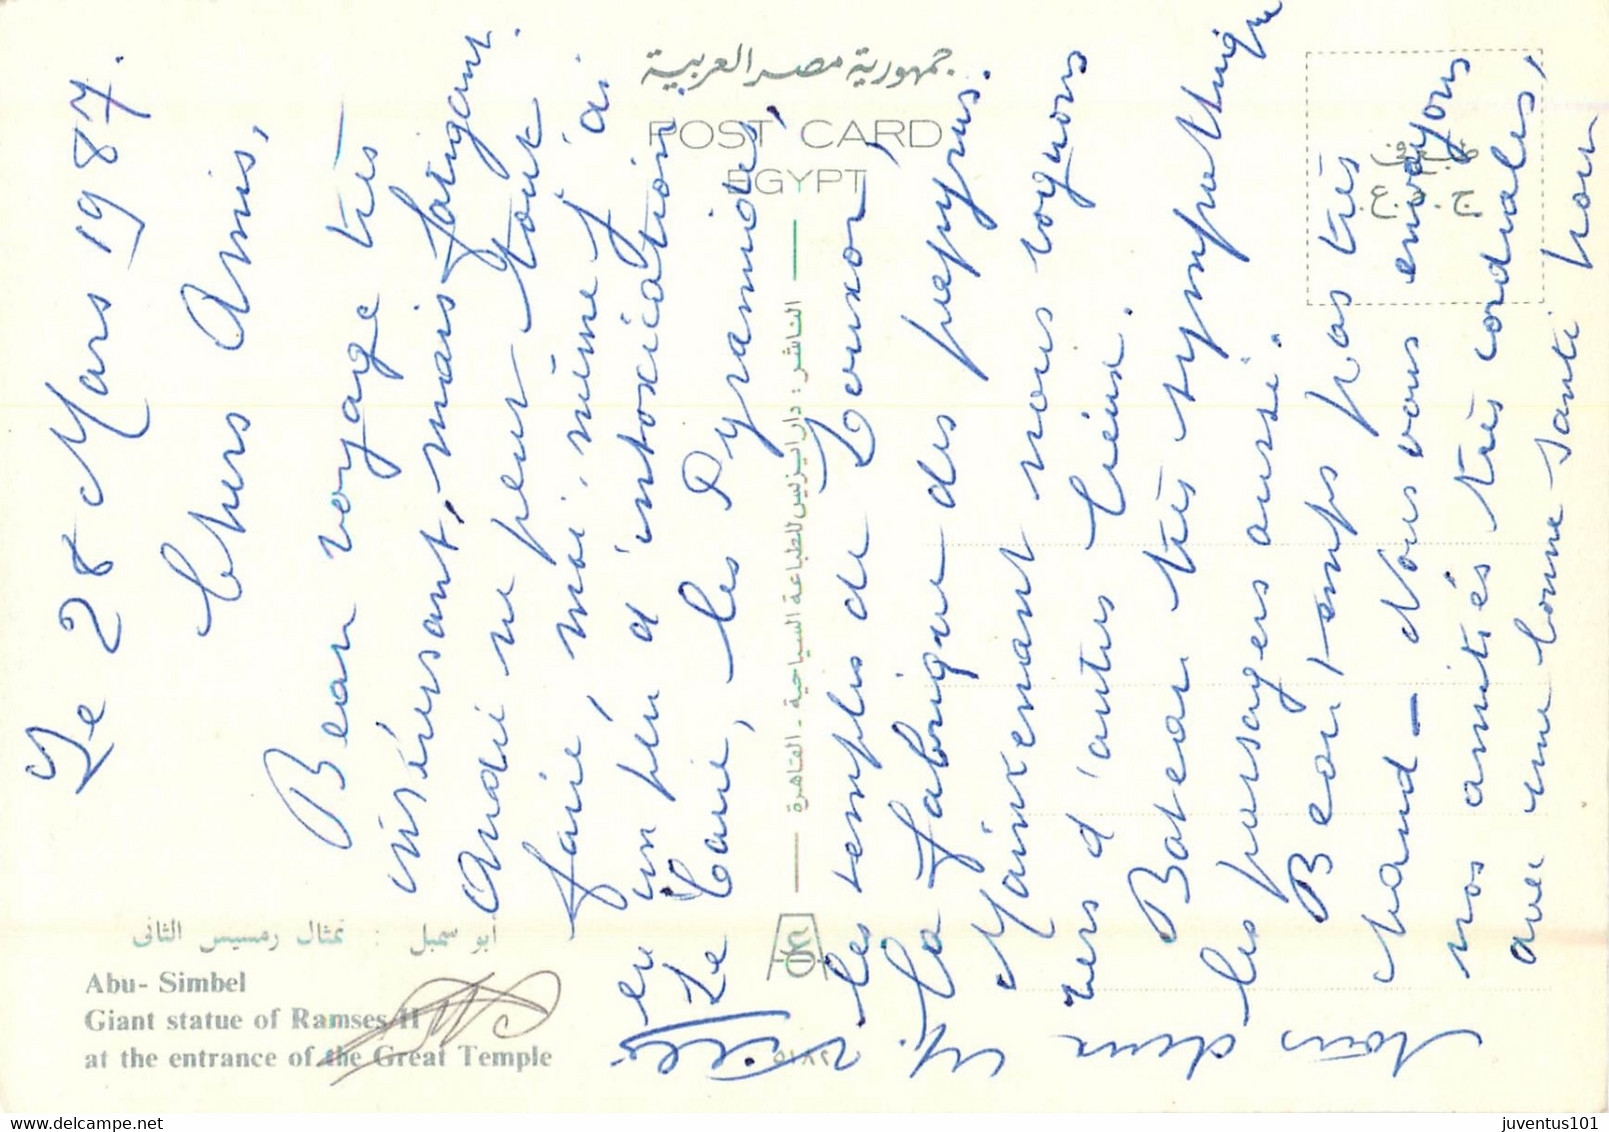 جمهورية مصر العربية
POST CARD
EGYPT
الناشر : دار ايزيس للطباعة السياحية - القاهرة
أبو سمبل : تمثال رمسيس الثانى
Abu- Simbel
Giant statue of Ramses II
at the entrance of the Great Temple
Le 28 Mars 1987.
Chers Amis,
Beau voyage très
intéressant, mais fatigant.
André ne peut tout
faire, moi-même j'ai
eu un peu d'intoxication
Le Caire, les Pyramides,
les temples de Louxor,
la fabrique des papyrus.
Maintenant nous voguons
vers d'autres lieux.
Bateau très sympathique
les passagers aussi.
Beau temps pas très
chaud - Nous vous envoyons
nos amitiés très cordiales,
avec une bonne santé pour
vous deux
delcampe.net
juventus101